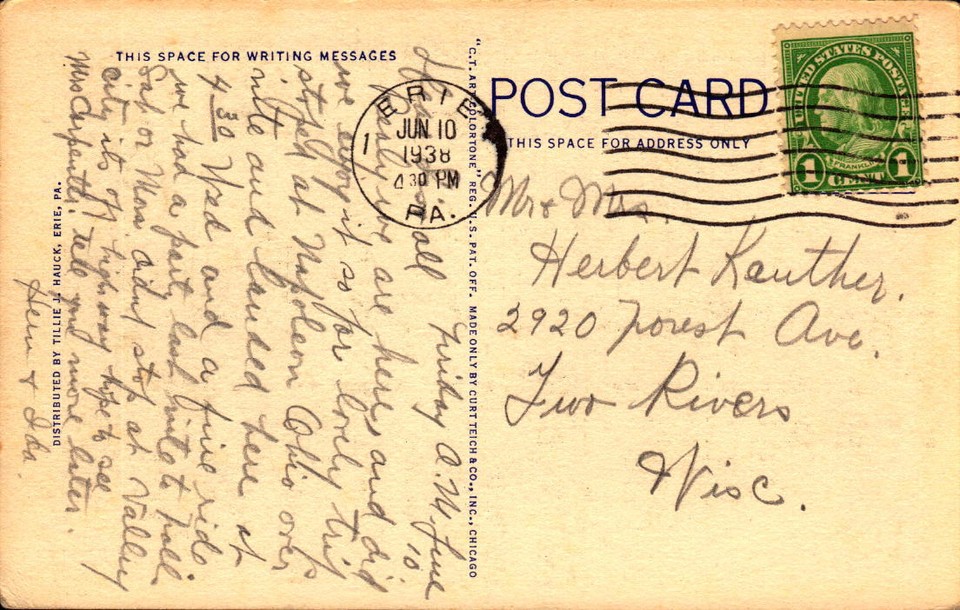 THIS SPACE FOR WRITING MESSAGES
Friday A.M June 10
all
we are here and did
we enjoy it so far lovely trip
stoped at Napoleon Ohio over
nite and landed here at
4 30 Wed and a fine ride
we had a party last nite
Sat or Mon didnt stop at Valley
City its off highway hope to see
Mrs Carpenter. tell you more later.
Herm & Ida.
DISTRIBUTED BY TILLIE J. HAUCK, ERIE, PA.
"C.T. ART-COLORTONE" REG. U.S. PAT. OFF. MADE ONLY BY CURT TEICH & CO., INC., CHICAGO
ERIE
1
JUN 10
1938
4 30 PM
PA.
POST CARD
THIS SPACE FOR ADDRESS ONLY
UNITED STATES POSTAGE
FRANKLIN
1 CENT 1
Mr & Mrs.
Herbert Kauther.
2920 Forest Ave.
Two Rivers
Wisc.